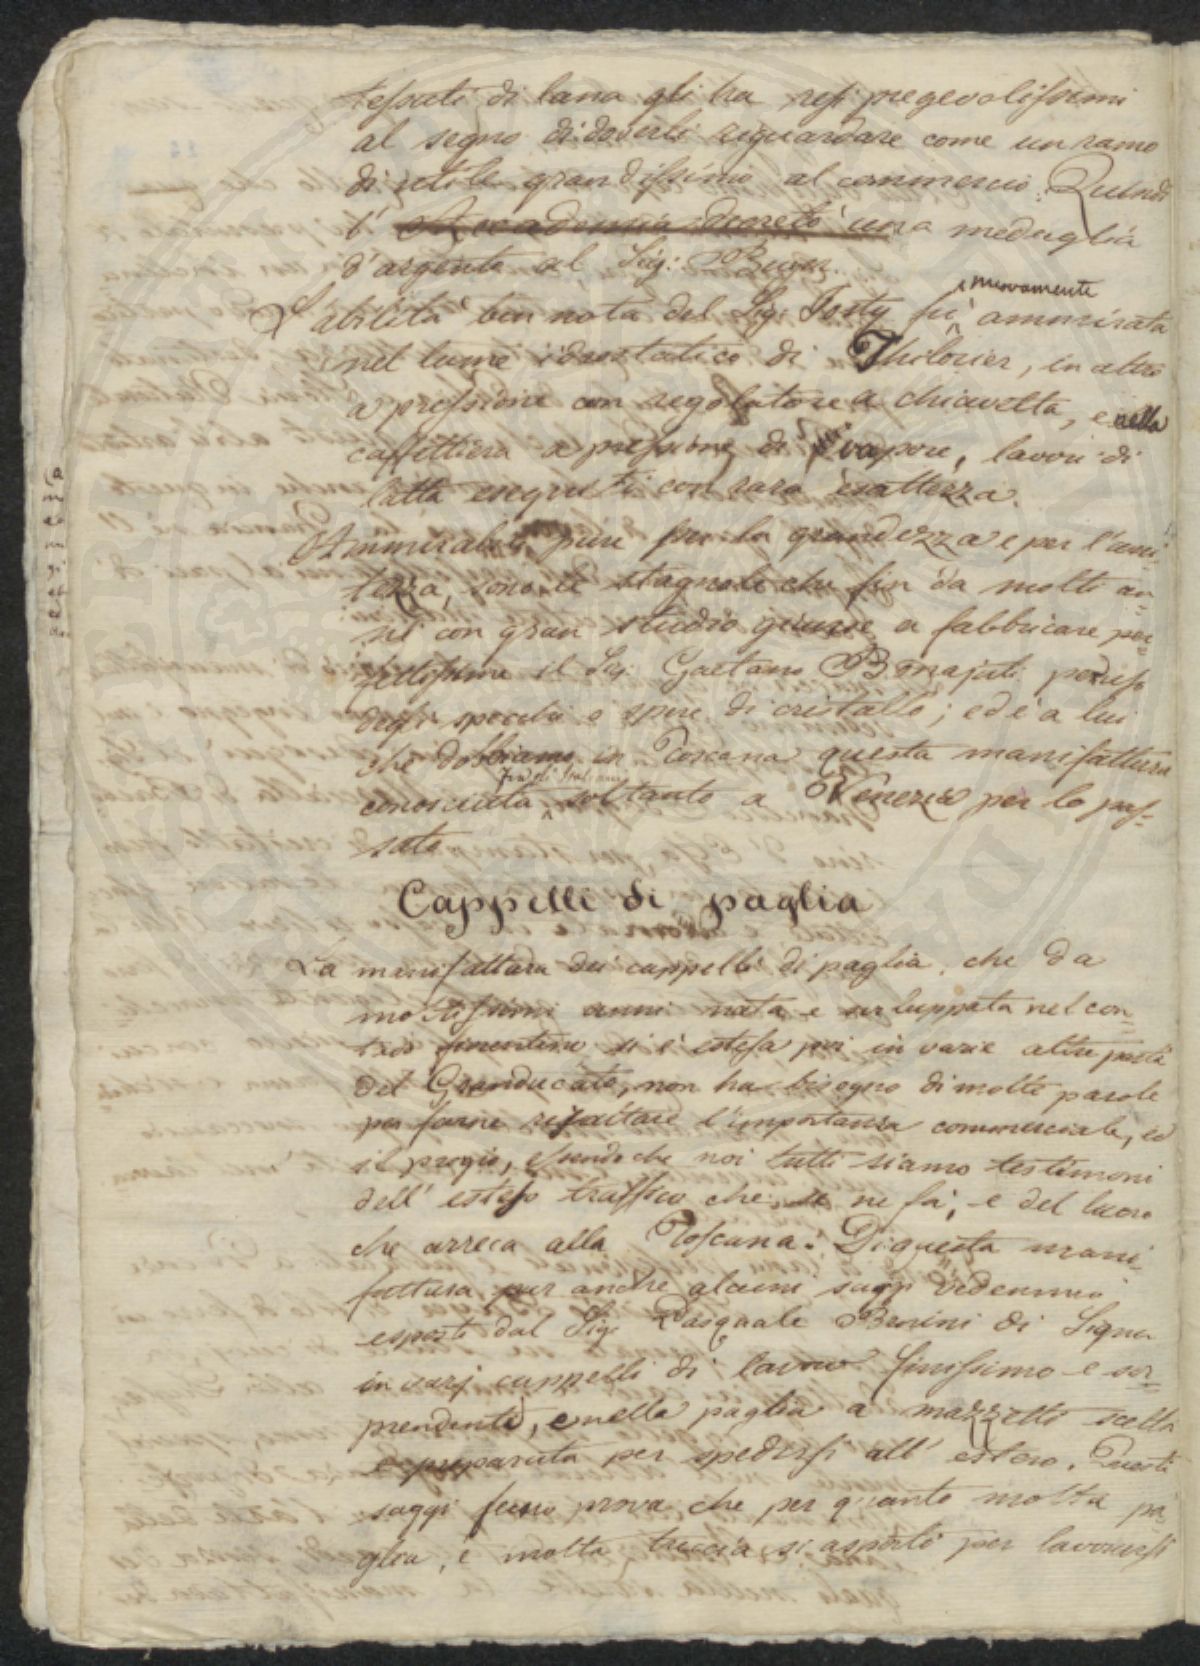 tessuti di lana gli ha resi pregevolissimi
al segno di doverli riguardare come un ramo
di utile grandissimo al commercio. Quindi
l' Accademia decretò una medaglia
d'argento al Sig:
L'abilità ben nota del Sig: fù nuovamente ammirata
nel lume idrostatico di Thilorier, in altro
a pressione con regolatore a chiavetta, e nella
caffettiera a pressione di vapore, lavori di
latta eseguiti con rara esattezza.
Ammirabili pure per la grandezza e per l'
tezza, sono le stagnole che fin da molti an=
ni con gran studio giunse a fabbricare per=
fettissime il Sig: Gaetano
degli specchi e spere di cristallo; ed è a lui
che dobbiamo in Toscana questa manifattura
conosciuta fra gli Italiani soltanto a Venezia per lo pas=
sato
Cappelli di paglia
La manifattura dei cappelli di paglia, che da
moltissimi anni nata e sviluppata nel con=
tado fiorentino si è estesa poi in varie altre parti
del Granducato, non ha bisogno di molte parole
per farne risaltare l'importanza commerciale, ed
il pregio, essendoche noi tutti siamo testimoni
dell' esteso traffico che se ne fà, e del lucro
che arreca alla Toscana. Di questa mani
fattura pur anche alcuni saggi vedemmo
esposti dal Sig: Pasquale Benini di Signa
in varj cappelli di lavoro finissimo e sor=
prendente, e nella paglia a mazzetti scelta
e preparata per spedirsi all' estero. Questi
saggi fecero prova che per quanto molta pa
glia, e molta treccia si asporti per lavorarsi